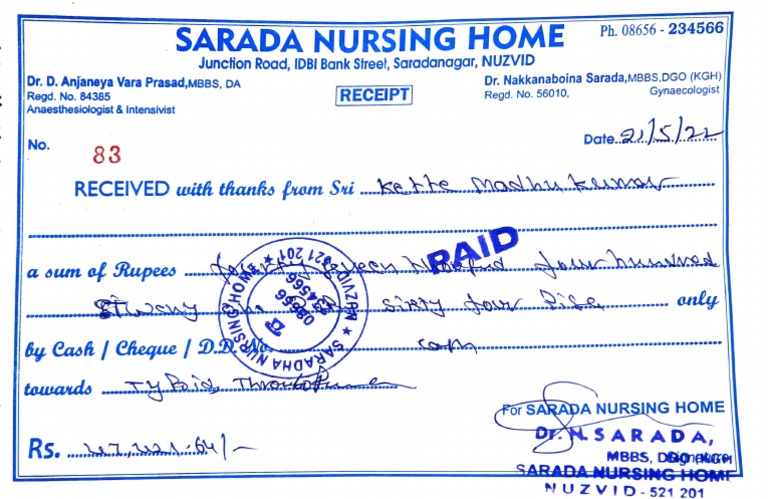 SARADA NURSING HOME
Ph. 08656 - 234566
Junction Road, IDBI Bank Street, Saradanagar, NUZVID
Dr. D. Anjaneya Vara Prasad, MBBS, DA
Regd. No. 84385
Anaesthesiologist & Intensivist
RECEIPT
Dr. Nakkanaboina Sarada, MBBS, DGO (KGH)
Regd. No. 56010, Gynaecologist
No. 83
Date 21/5/22
RECEIVED with thanks from Sri Kette Madhu Kumar
PAID
a sum of Rupees four hundred
sixty four only
by Cash / Cheque / D.D. No.
towards
SARADHA NURSING HOME ★ NUZVID-521 201 ★
08656
234566
For SARADA NURSING HOME
Rs.
Dr. N. SARADA,
MBBS, DGO (KGH)
SARADA NURSING HOME
NUZVID - 521 201